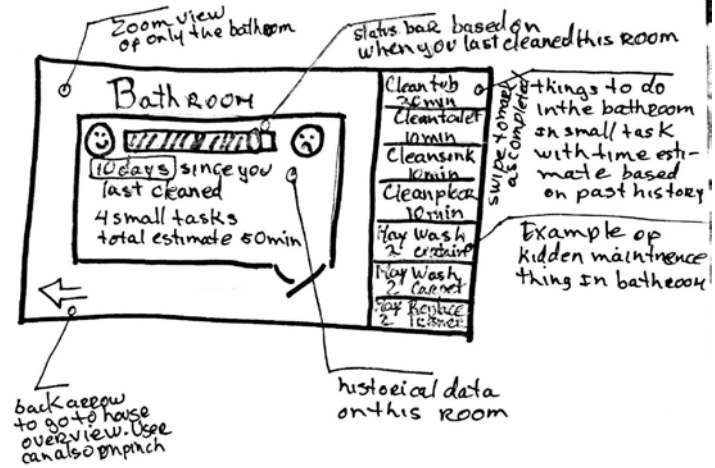 Zoom view
of only the bathroom
status bar based on
when you last cleaned this room
Bathroom
10 days since you
last cleaned
4 small tasks
total estimate 50min
Clean tub
20min
Clean toilet
10min
Clean sink
10min
Clean floor
10min
May Wash
2 curtain
May Wash
2 Carpet
May Replace
2
swipe to mark
as completed
things to do
in the bathroom
in small task
with time esti-
mate based
on past history
Example of
hidden maintnence
thing in bathroom
back arrow
to go to house
overview. User
can also
historical data
on this room